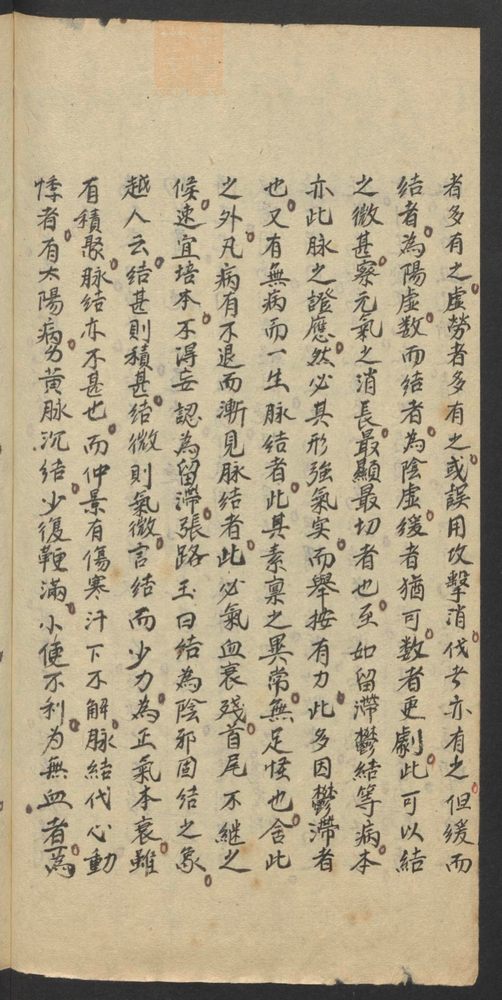 者多有之虛勞者多有之或誤用攻擊消伐者亦有之但緩而
結者為陽虛数而結者為陰虛緩者猶可数者更劇此可以結
之微甚察元氣之消長最顯最切者也至如留滯鬱結等病本
亦此脉之證應然必其形強氣实而舉按有力此多因鬱滯者
也又有無病而一生脉結者此其素稟之異常無足怪也舍此
之外凡病有不退而漸見脉結者此必氣血衰殘首尾不継之
候速宜培本不得妄認為留滯張路玉曰結為陰邪固結之象
越人云結甚則積甚結微則氣微言結而少力為正氣本衰雖
有積聚脉結亦不甚也而仲景有傷寒汗下不解脉結代心動
悸者有太陽病身黄脉沉結少復鞕滿小便不利为無血者為